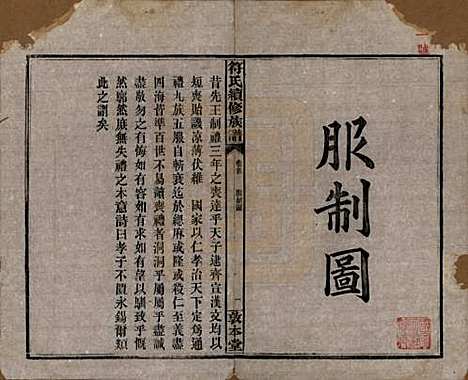 服制圖
符氏續修族譜
卷首
服制圖
一
敦本堂
昔先王制禮三年之喪達乎天子逮齊宣漢文均以
短喪貽譏涼薄伏維　國家以仁孝治天下定為通
禮九族五服自斬衰迄於緦麻或隆或殺仁至義盡
四海昔準百世不易讀喪禮者洞洞乎屬屬乎盡誠
盡敬勿之有悔如有容和如有望以馴致乎慨
然廓然庶無失禮之本意詩曰孝子不匱永錫爾類
此之謂矣